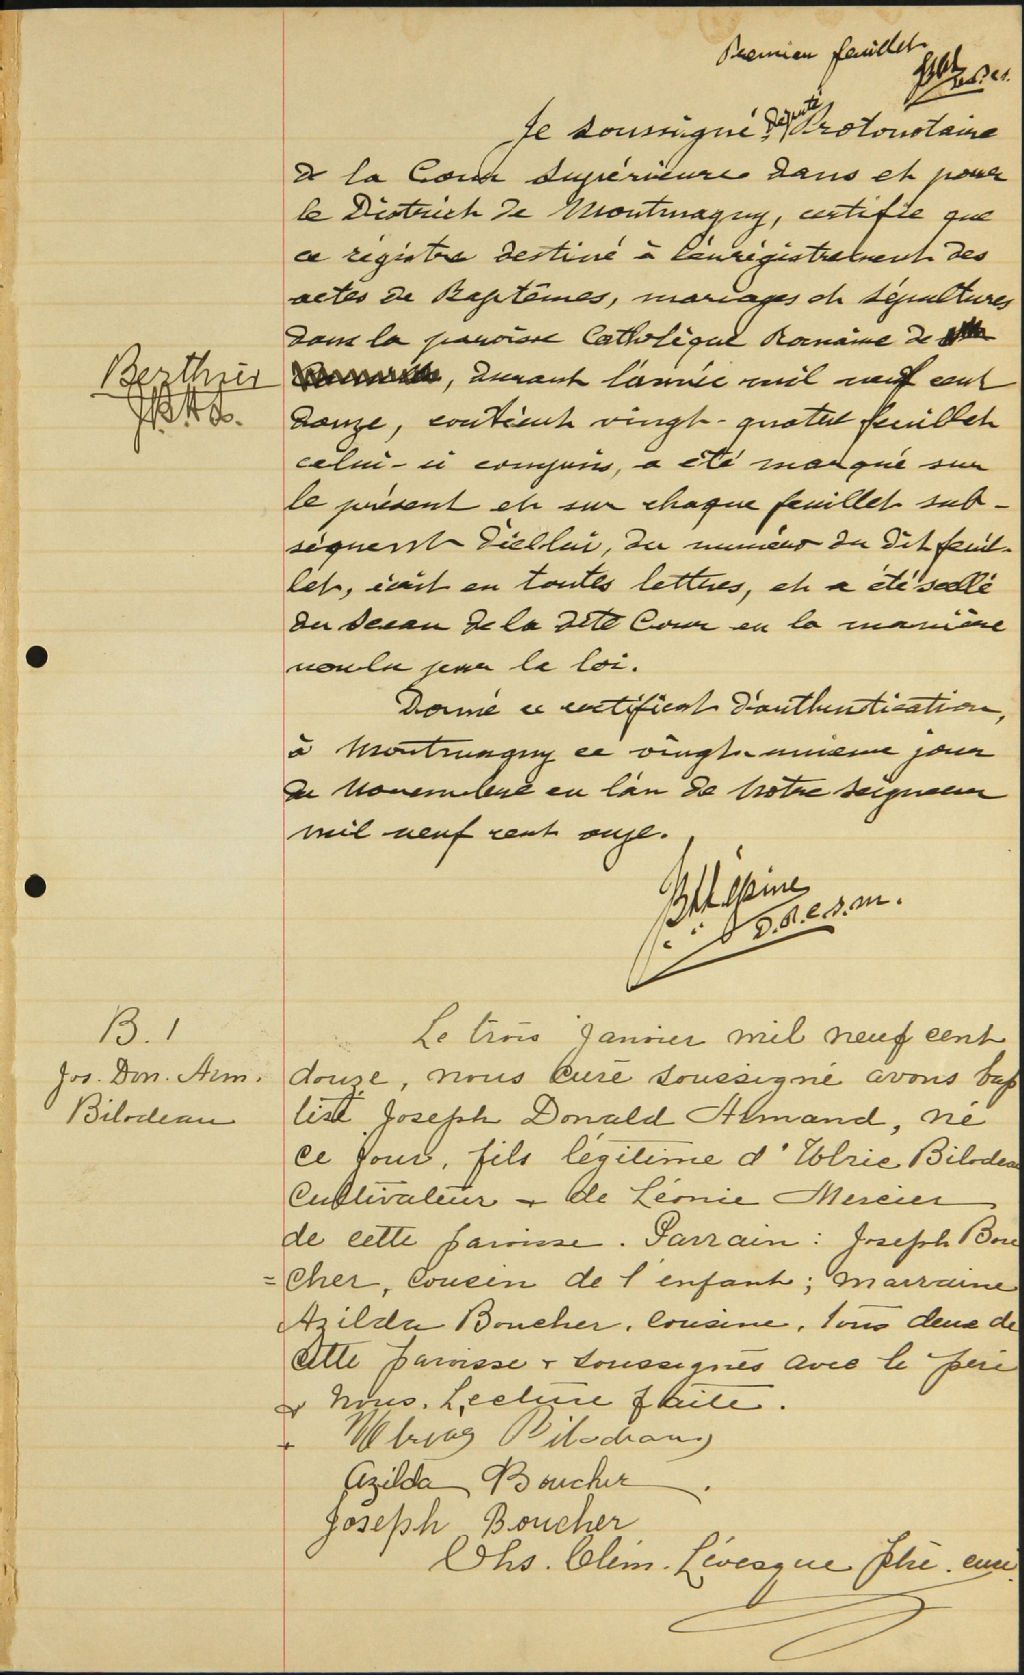 Premier feuillet
Je soussigné député Protonotaire
de la Cour Supérieure dans et pour
le District de Montmagny, certifie que
ce régistre destiné à l'enrégistrement des
actes de Baptêmes, mariages et sépultures
dans la paroisse Catholique Romaine de
Berthier
J.B.H.L.
, durant l'année mil neuf cent
douze, contient vingt-quatre feuillets
celui-ci compris, a été marqué sur
le présent et sur chaque feuillet sub-
séquent d'icelui, du numéro du dit feuil-
let, écrit en toutes lettres, et a été scellé
du Sceau de la dite Cour en la manière
voulu par la loi.
Donné ce certificat d'authentication,
à Montmagny ce vingt-unieme jour
de Novembre en l'an de Notre Seigneur
mil neuf cent onze.
JBHLépine
D.P.C.S.M.
B. 1
Jos. Don. Arm.
Bilodeau
Le trois janvier mil neuf cent
douze, nous curé soussigné avons bap
tisé Joseph Donald Armand, né
ce jour, fils légitime d'Ulric Bilodeau
Cultivateur + de Léonie Mercier
de cette paroisse. Parrain: Joseph Bou
= cher, cousin de l'enfant; marraine
Azilda Boucher, cousine, tous deux de
cette paroisse + soussignés avec le père
+ nous. Lecture faite.
+ Bilodeau
Azilda Boucher.
Joseph Boucher
Chs. Clém. Lévesque ptre. curé.